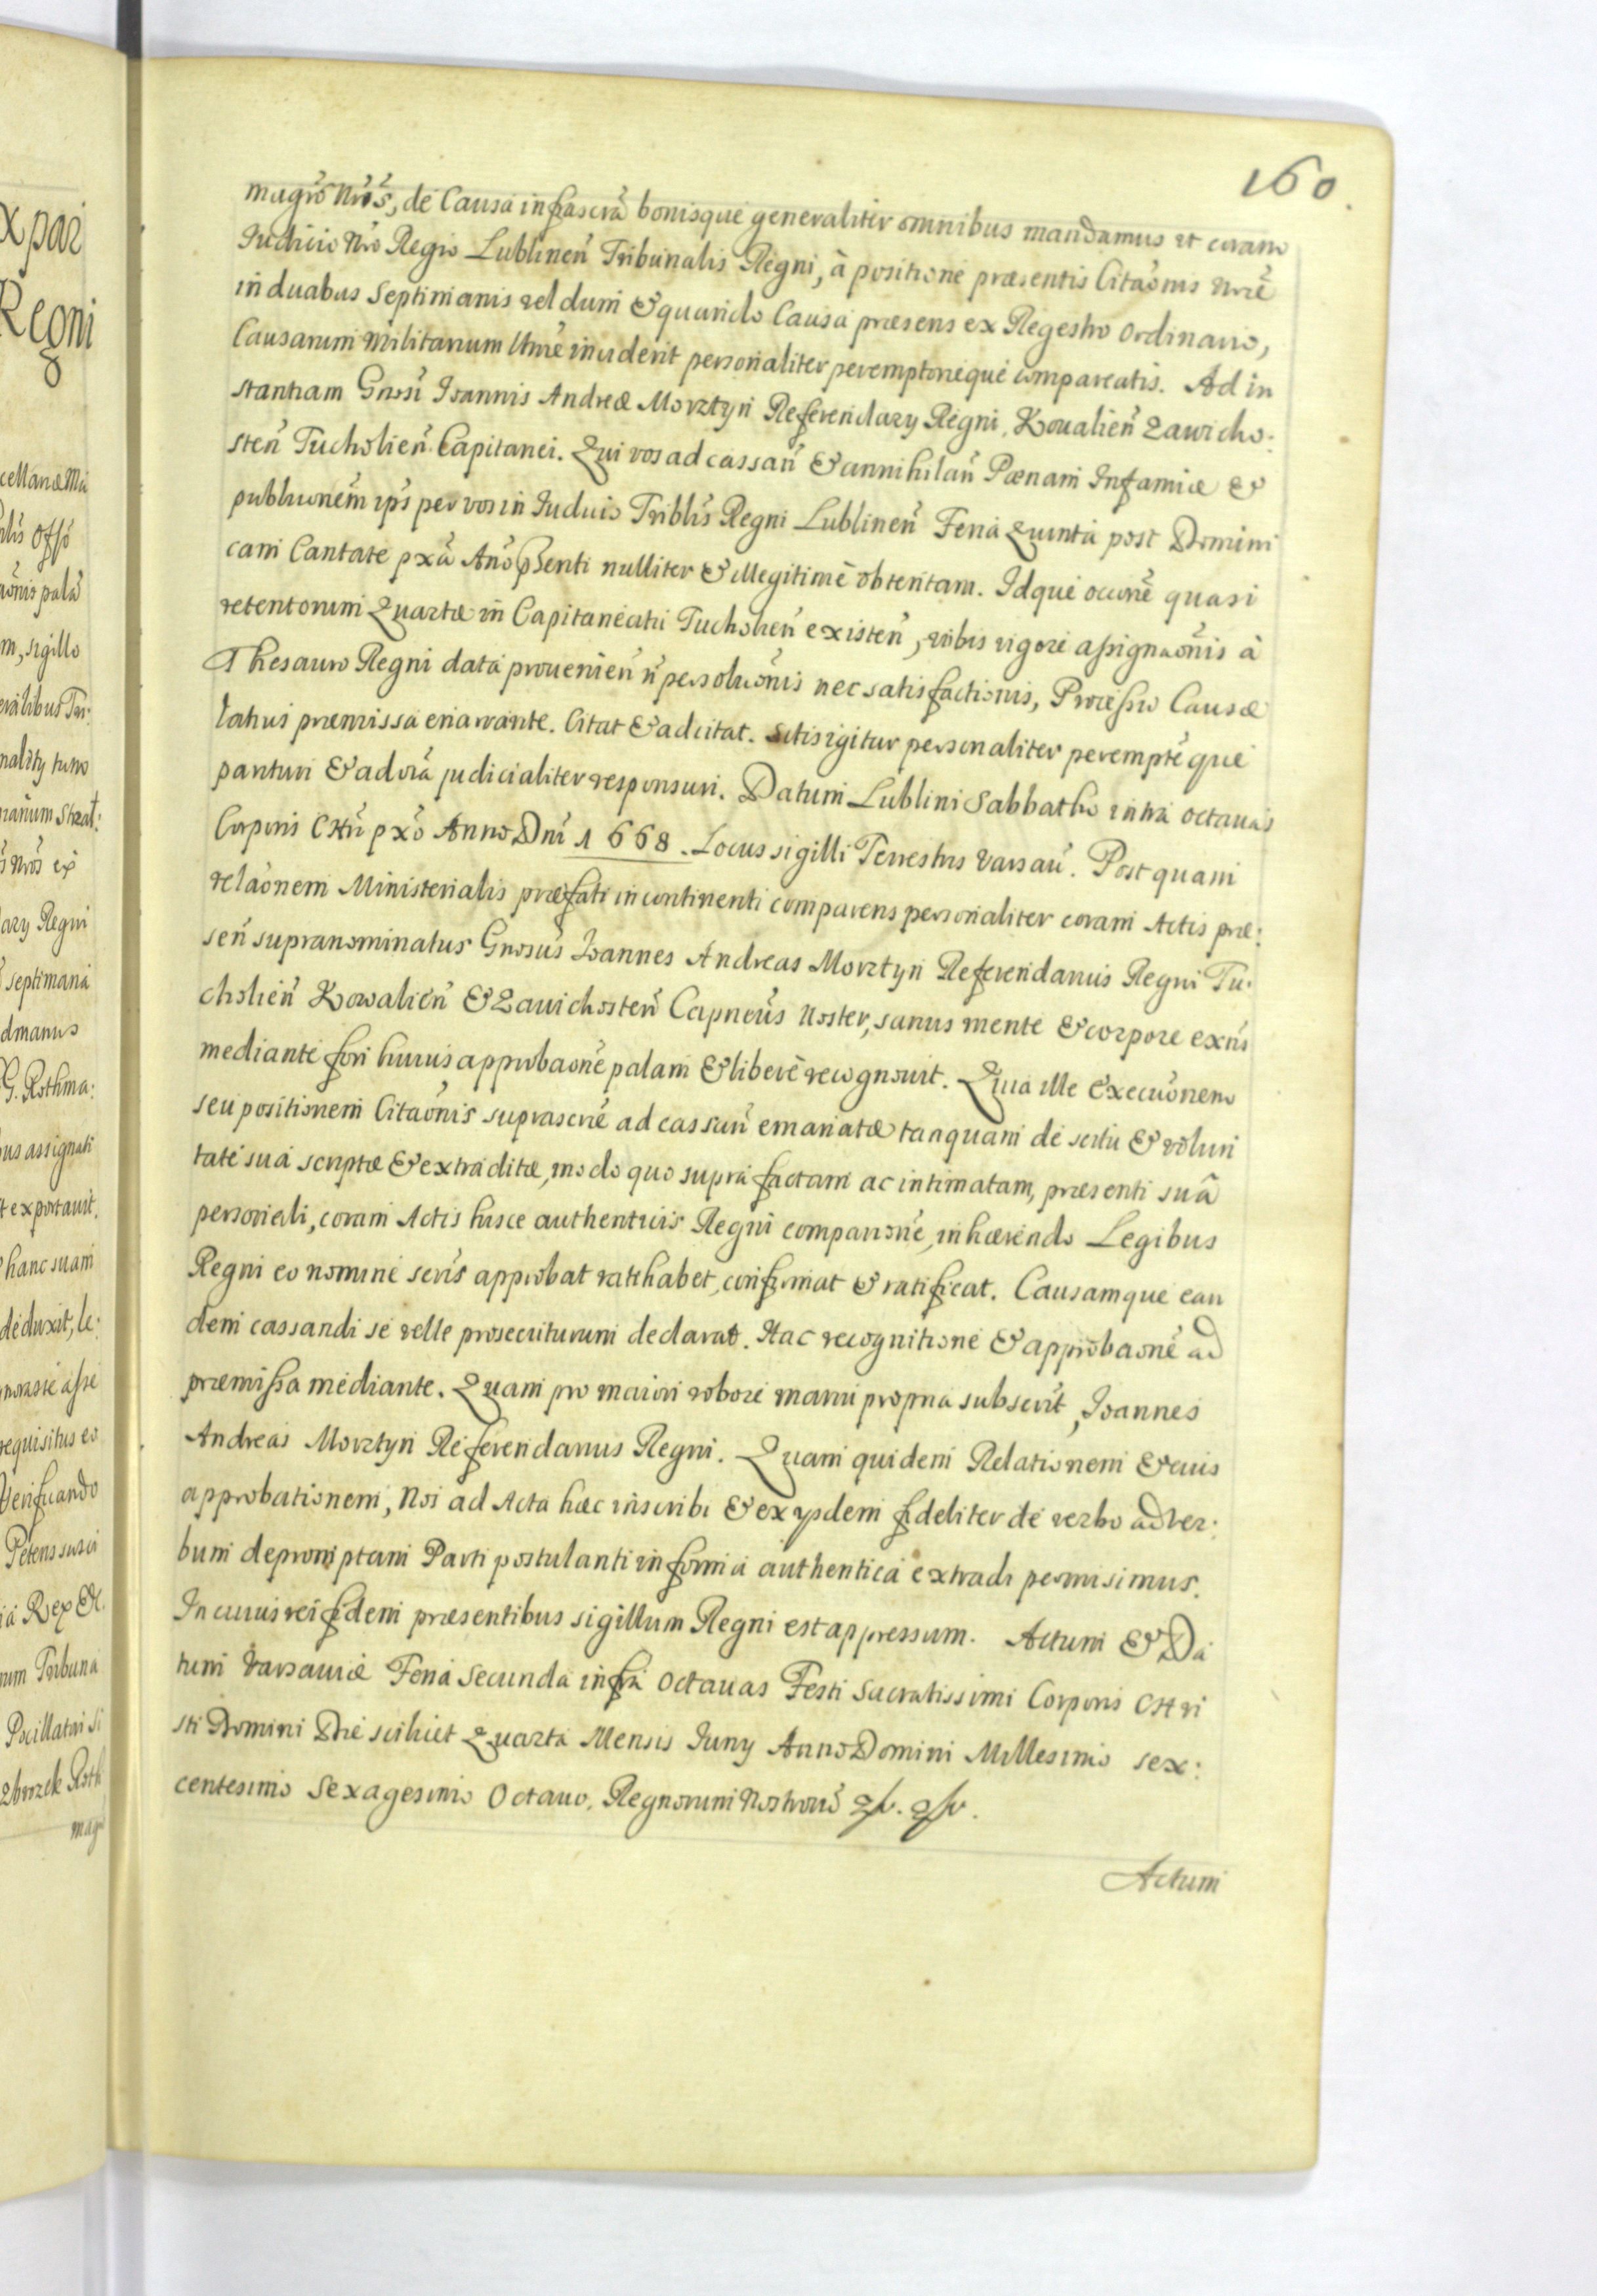 160.
magrô Nrôs, de Causa infrascrâ bonisque generaliter omnibus mandamus ut coram
Iudicio Nrô Regio Lublineñ Tribunalis Regni, à positione præsentis Citaônis Nræ
in duabus Septimanis vel dum & quando Causa præsens ex Regestro Ordinario,
Causarum Militarium Vtrie inciderit personaliter peremptorieque compareatis. Ad in
stantiam Gnôsi Ioannis Andreæ Morztyn Referendarÿ Regni, Kovalieñ Zawicho:
steñ Tucholieñ Capitanei. Qui vos ad cassañ & annihilañ Pœnam Infamiæ &
publicônem ips̃ per vos in Iudicio Triblis Regni Lublineñ Feria Quinta post Domini
cam Cantate pxâ Anô pñsenti nulliter & illegitime obtentam. Idque occône quasi
retentorum Quartæ in Capitaneatu Tucholieñ existeñ, vobis vigore assignaônis à
Thesauro Regni data provenieñ ñ persoluônis nec satisfactionis, Processu Causæ
latius præmissa enarrante. Citat & adcitat. Sitis igitur personaliter peremptê que
parituri & ad vrâ judicialiter responsuri. Datum Lublini Sabbatho intra octavas
Corporis CHri pxô Anno Dni 1668. Locus sigilli Terrestris Varsaũ. Post quam
relaônem Ministerialis præfati in continenti comparens personaliter coram Actis præ:
señ supranominatus Gnosus Ioannes Andreas Morztyn Referendarius Regni Tu:
cholieñ Kowalieñ & Zawichosteñ Capneus Noster, sanus mente & corpore exñs
mediante fori huius approbaone palam & liberè recognovit. Quia ille execuônem
seu positionem Citaônis suprascræ ad cassañ emanatæ tanquam de scitu & volun
tate sua scriptæ & extraditæ, modo quo supra factam ac intimatam, præsenti suâ
personali, coram Actis hisce authenticis Regni compariône, inhærendo Legibus
Regni eo nomine scris approbat ratihabet, confirmat & ratificat. Causamque ean
dem cassandi se velle prosecuturum declarat. Hac recognitione & approbaonê ad
præmissa mediante. Quam pro maiori robore manu propria subscrit, Ioannes
Andreas Morztyn Referendarius Regni. Quam quidem Relationem & eius
approbationem, Nos ad Acta hæc inscribi & ex ÿsdem fideliter de verbo ad ver:
bum depromptam Parti postulanti in forma authentica extradi permisimus.
In cuius rei fidem præsentibus sigillum Regni est appressum. Actum & Da
tum Varsaviæ Feria Secunda infra Octavas Festi Sacratissimi Corporis CHri
sti Domini Die scilicet Quarta Mensis Iunÿ Anno Domini Millesimo sex:
centesimo Sexagesimo Octavo. Regnorum Nostrorũ
Actum